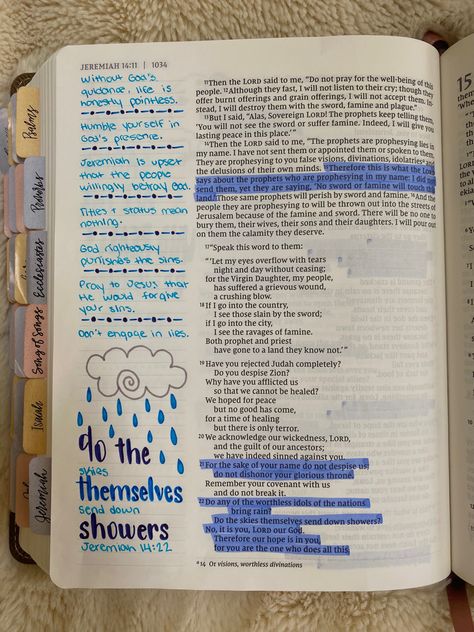 JEREMIAH 14:11 | 1034
Without God's
guidance, life is
honestly pointless.
Humble yourself in
God's presence.
Jeremiah is upset
that the people
willingly betray God.
Titles & status mean
nothing.
God righteously
punishes the sins.
Pray to Jesus that
He would forgive
your sins.
Don't engage in lies.
do the
skies
themselves
send down
showers
Jeremiah 14:22
11Then the LORD said to me, "Do not pray for the well-being of this
people. 12Although they fast, I will not listen to their cry; though they
offer burnt offerings and grain offerings, I will not accept them. In-
stead, I will destroy them with the sword, famine and plague."
13But I said, "Alas, Sovereign LORD! The prophets keep telling them,
'You will not see the sword or suffer famine. Indeed, I will give you
lasting peace in this place.'"
14Then the LORD said to me, "The prophets are prophesying lies in
my name. I have not sent them or appointed them or spoken to them.
They are prophesying to you false visions, divinations, idolatries a and
the delusions of their own minds. 15Therefore this is what the LORD
says about the prophets who are prophesying in my name: I did not
send them, yet they are saying, 'No sword or famine will touch this
land.' Those same prophets will perish by sword and famine. 16And the
people they are prophesying to will be thrown out into the streets of
Jerusalem because of the famine and sword. There will be no one to
bury them, their wives, their sons and their daughters. I will pour out
on them the calamity they deserve.
17"Speak this word to them:
"'Let my eyes overflow with tears
night and day without ceasing;
for the Virgin Daughter, my people,
has suffered a grievous wound,
a crushing blow.
18If I go into the country,
I see those slain by the sword;
if I go into the city,
I see the ravages of famine.
Both prophet and priest
have gone to a land they know not.'"
19Have you rejected Judah completely?
Do you despise Zion?
Why have you afflicted us
so that we cannot be healed?
We hoped for peace
but no good has come,
for a time of healing
but there is only terror.
20We acknowledge our wickedness, LORD,
and the guilt of our ancestors;
we have indeed sinned against you.
21For the sake of your name do not despise us;
do not dishonor your glorious throne.
Remember your covenant with us
and do not break it.
22Do any of the worthless idols of the nations
bring rain?
Do the skies themselves send down showers?
No, it is you, LORD our God.
Therefore our hope is in you,
for you are the one who does all this.
a 14 Or visions, worthless divinations
Psalms
Proverbs
Ecclesiastes
Song of Songs
Isaiah
Jeremiah
15